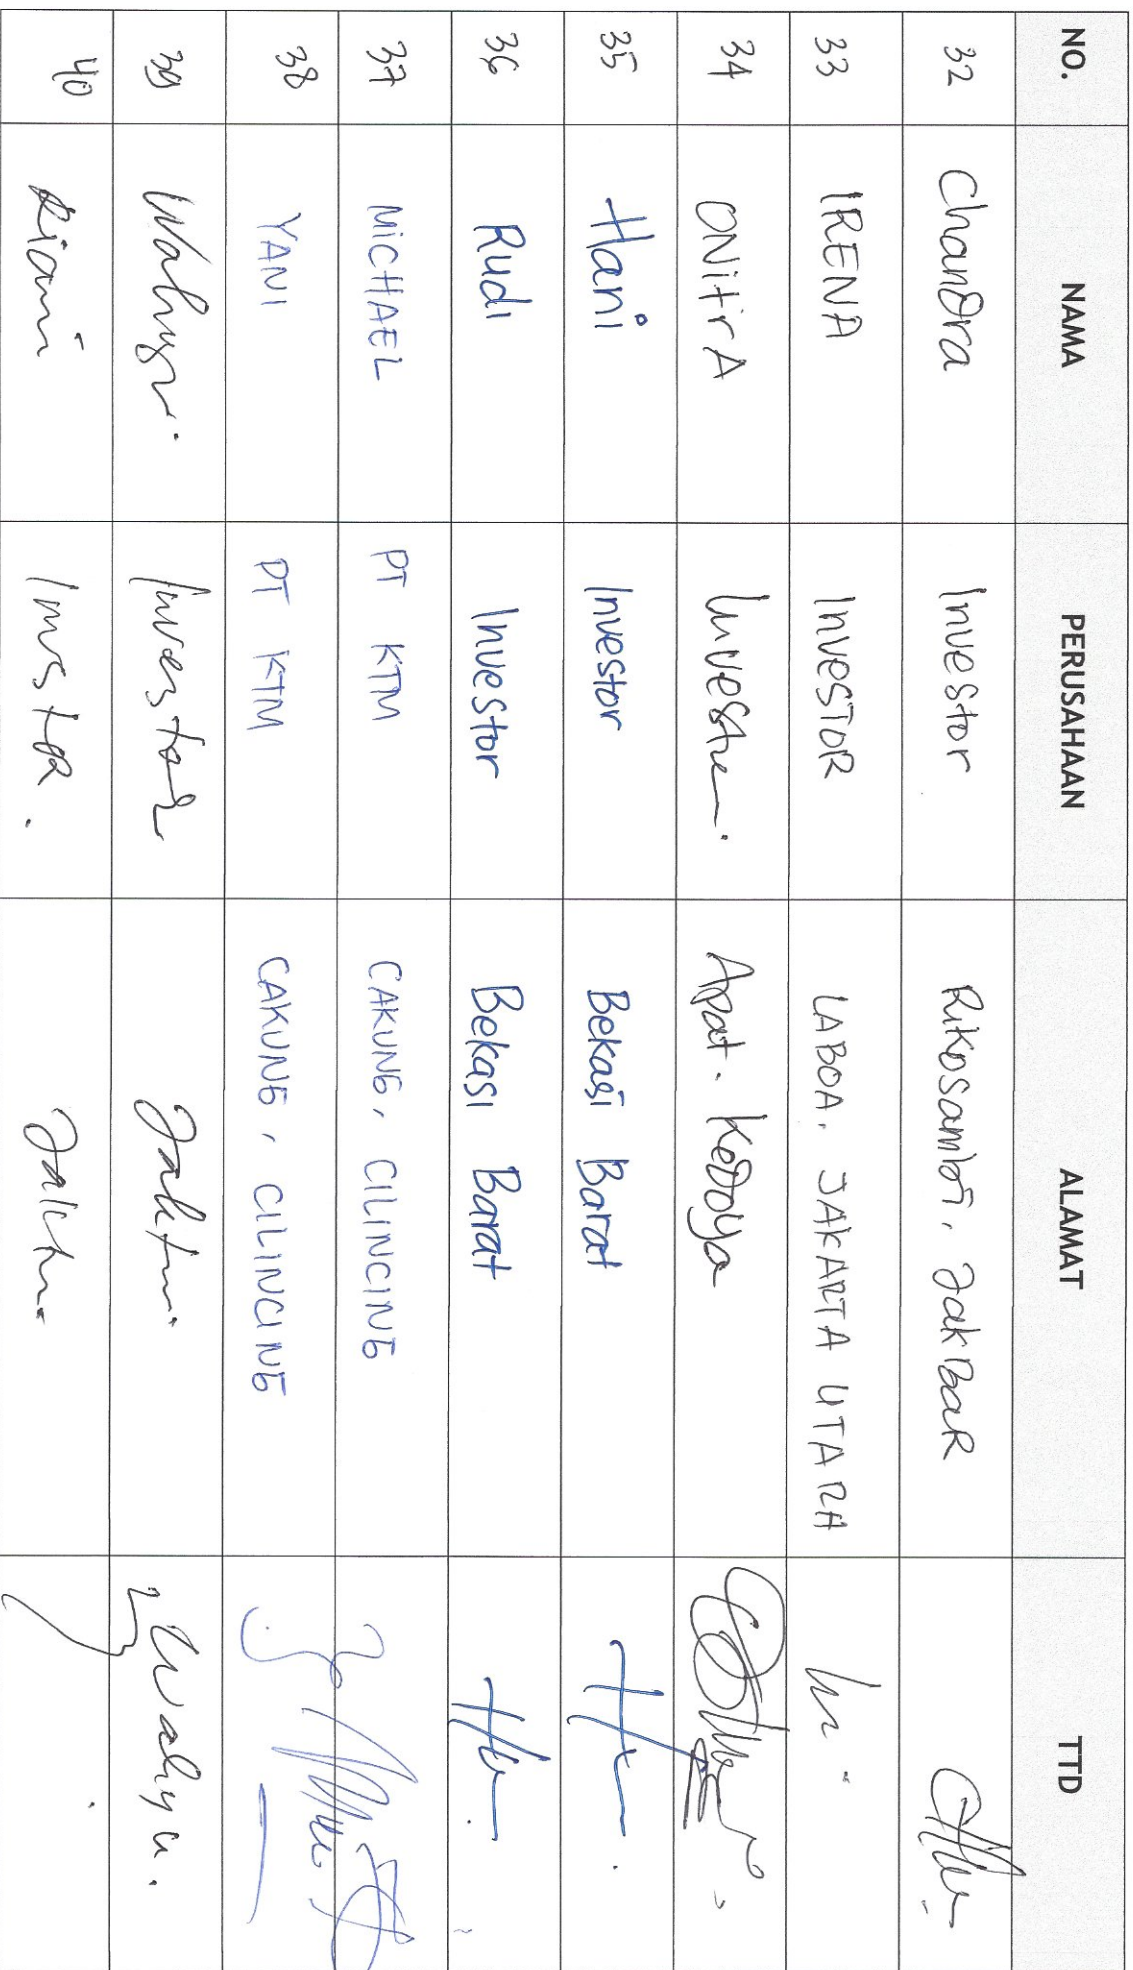 NO. NAMA PERUSAHAAN ALAMAT TTD
32 Chandra Investor Rikosambi, JakBaR
33 IRENA INVESTOR LABOA, JAKARTA UTARA
34 ONitirA Investor. Apat. Kedoya
35 Hani Investor Bekasi Barat
36 Rudi Investor Bekasi Barat
37 MiCHAEL PT KTM CAKUNG, CILINCING
38 YANI PT KTM CAKUNG, CILINCING
39 Wahyu. Investor Wahyu.
40 Riani